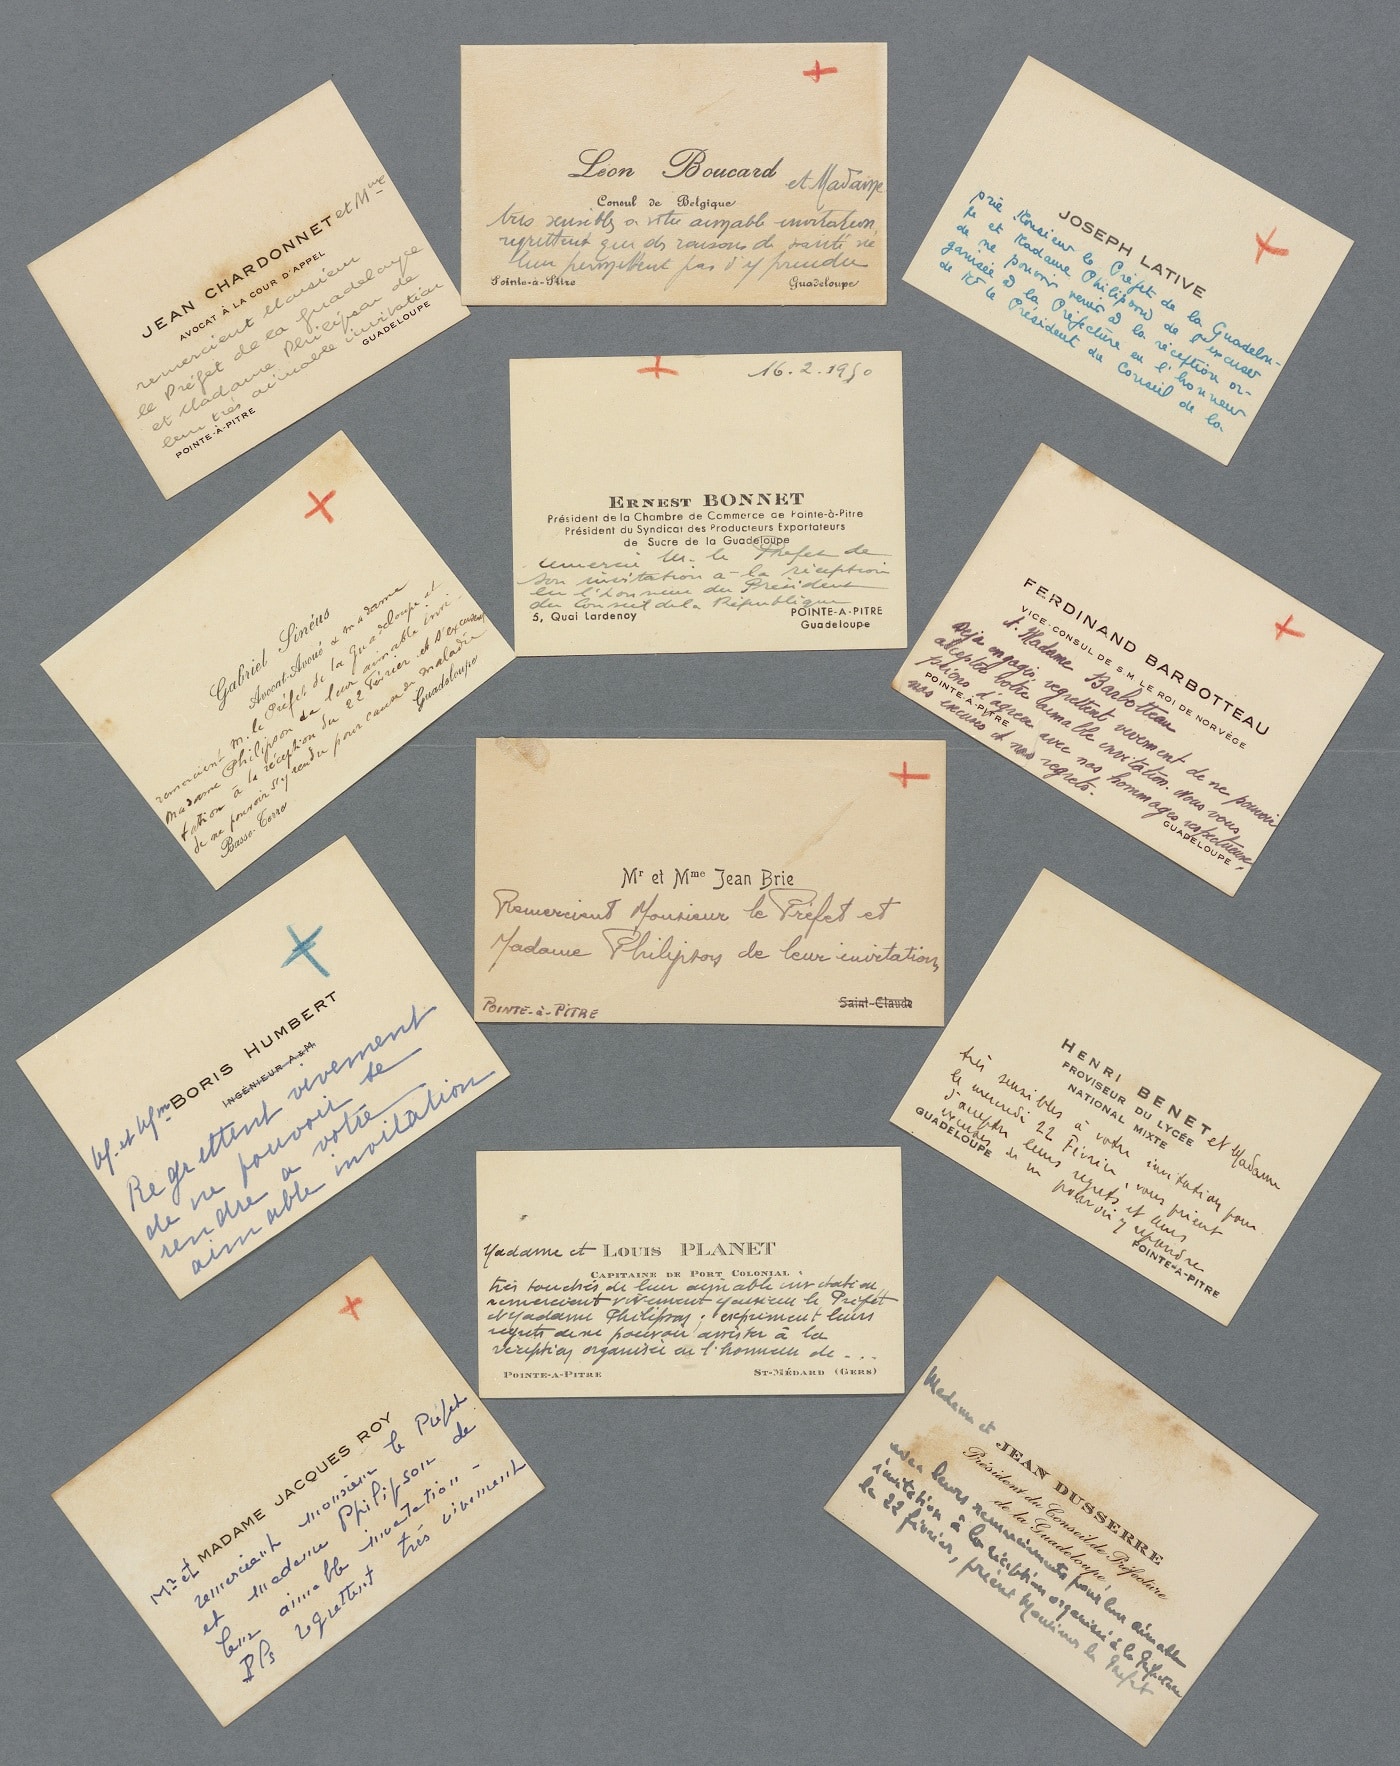 JEAN CHARDONNET et Mme
AVOCAT À LA COUR D'APPEL
remercient Monsieur
le Préfet de la Guadeloupe
et Madame Philipson de
leur très aimable invitation
POINTE-À-PITRE GUADELOUPE
Léon Boucard et Madame
Consul de Belgique
très sensibles a votre aimable invitation,
regrettent que des raisons de santé ne
leur permettent pas d'y prendre
Pointe-à-Pitre Guadeloupe
JOSEPH LATIVE
prie Monsieur le Préfet de la Guadelou-
pe et Madame Philipson de l'excuser
de ne pouvoir venir à la réception or-
ganisée à la Préfecture en l'honneur
de Mr le Président du Conseil de la
16.2.1950
ERNEST BONNET
Président de la Chambre de Commerce de Pointe-à-Pitre
Président du Syndicat des Producteurs Exportateurs
de Sucre de la Guadeloupe
remercie M. le Préfet de
son invitation à la réception
en l'honneur du Président
du Conseil de la République
5, Quai Lardenoy POINTE-A-PITRE
Guadeloupe
Gabriel Sinéus
Avocat-Avoué et madame
remercient M. le Préfet de la Guadeloupe et
Madame Philipson de leur aimable invi-
tation à la réception du 22 Février et s'excusent
de ne pouvoir s'y rendre pour cause de maladie
Basse-Terre Guadeloupe
FERDINAND BARBOTTEAU
VICE-CONSUL DE S.M. LE ROI DE NORVÈGE
et Madame Barbotteau
Déjà engagés, regrettent vivement de ne pouvoir
accepter votre aimable invitation. Nous vous
prions d'agréer avec nos hommages respectueux,
nos excuses et nos regrets.
POINTE-À-PITRE GUADELOUPE
Mr et Mme Jean Brie
Remercient Monsieur le Préfet et
Madame Philipson de leur invitation
POINTE-à-PITRE Saint-Claude
M. et Mme BORIS HUMBERT
INGÉNIEUR A&M
Regrettent vivement
de ne pouvoir se
rendre a votre
aimable invitation
HENRI BENET et Madame
PROVISEUR DU LYCÉE
NATIONAL MIXTE
très sensibles à votre invitation pour
le mercredi 22 Février, vous prient
d'accepter leurs regrets et leurs
excuses de ne pouvoir y répondre
GUADELOUPE POINTE-À-PITRE
Madame et LOUIS PLANET
CAPITAINE DE PORT COLONIAL
très touchés de leur aimable invitation,
remercient vivement Monsieur le Préfet
et Madame Philipson; expriment leurs
regrets de ne pouvoir assister à la
réception organisée en l'honneur de ...
POINTE-A-PITRE ST-MÉDARD (GERS)
Mr et MADAME JACQUES ROY
remercient monsieur le Préfet
et madame Philipson de
leur aimable invitation -
regrettent très vivement
Madame et JEAN DUSSERRE
Président du Conseil de Préfecture
de la Guadeloupe
avec leurs remerciements pour leur aimable
invitation à la réception organisée à la Préfecture
le 22 février, prient Monsieur le Préfet